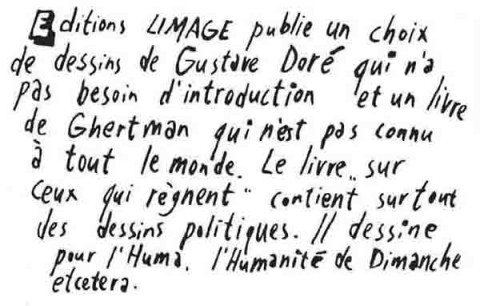 Editions LIMAGE publie un choix
de dessins de Gustave Doré qui n'a
pas besoin d'introduction et un livre
de Ghertman qui n'est pas connu
à tout le monde. Le livre „ sur
ceux qui règnent " contient surtout
des dessins politiques. Il dessine
pour l'Huma. l'Humanité de Dimanche
etcetera.